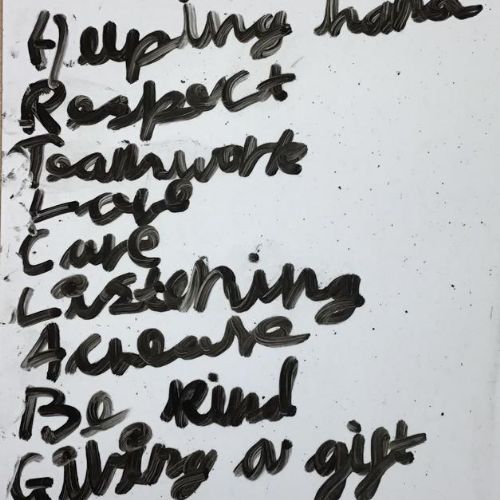 Helping hand
Respect
Teamwork
Love
Care
Listening
Be kind
Giving a gift